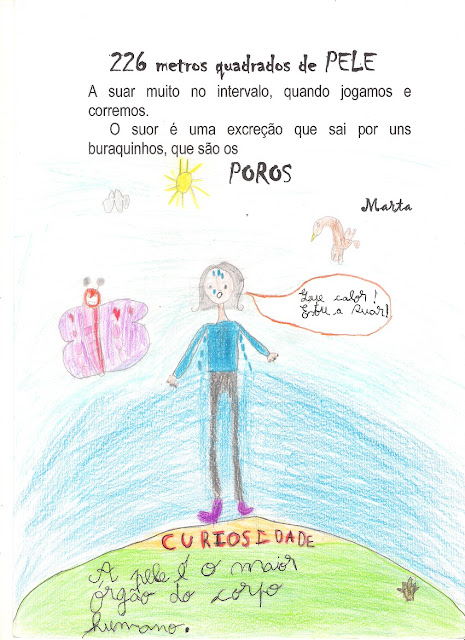 226 metros quadrados de PELE
A suar muito no intervalo, quando jogamos e
corremos.
O suor é uma excreção que sai por uns
buraquinhos, que são os
POROS
Marta
Que calor!
Estou a suar!
CURIOSIDADE
A pele é o maior
órgão do corpo
humano.